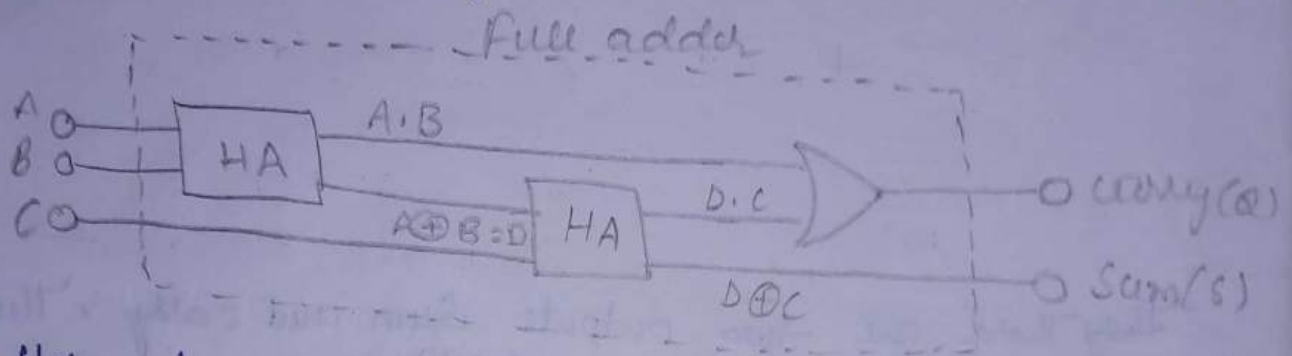 Full adder
A
B
C
HA
A.B
A⊕B=D
HA
D.C
D⊕C
Carry(Q)
Sum(S)